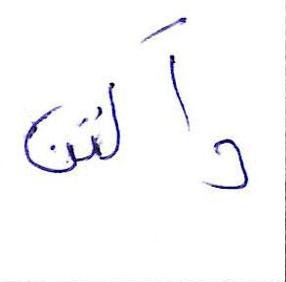 دآلتن